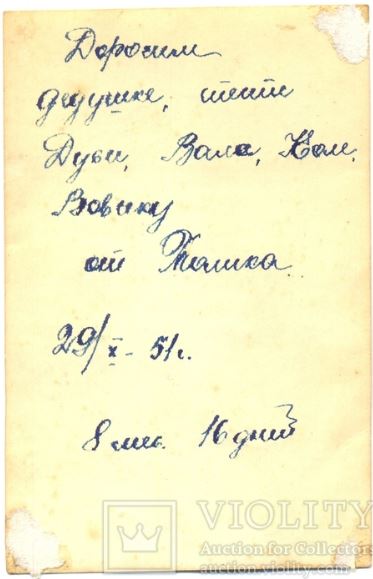 Дорогим
дедушке, тёте
Дусе, Вале, Коле,
Вовчику
от Толика.
29/X - 51 г.
8 мес. 16 дней
VIOLITY
Auction for Collectors
auction.violity.com